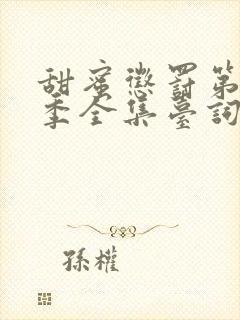 甜蜜懲罰第
季全集臺詞
孫權